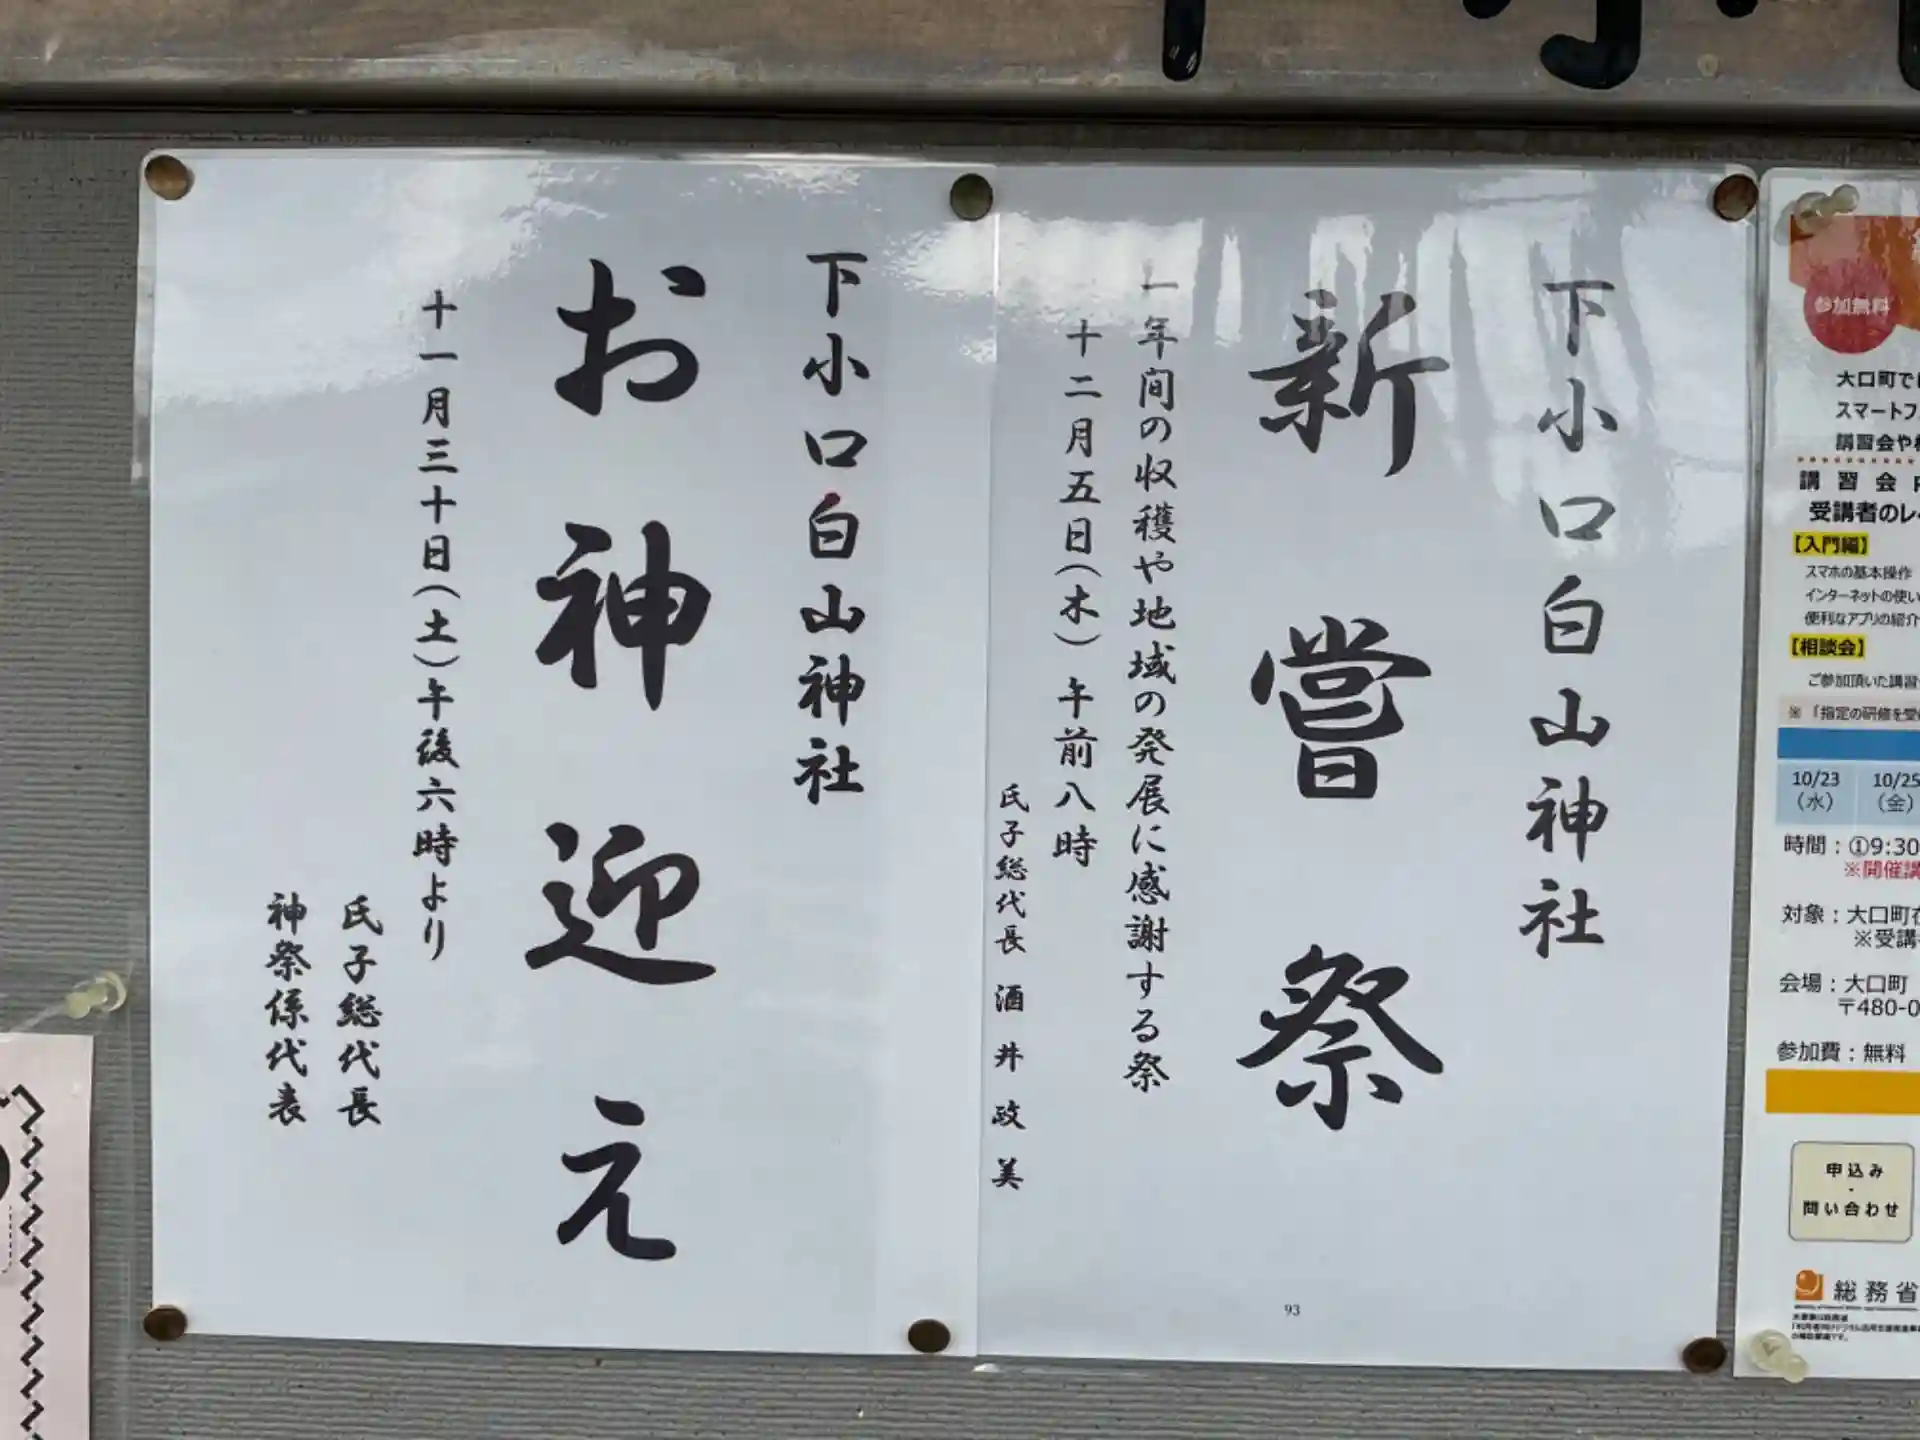 下小口白山神社
新嘗祭
一年間の収穫や地域の発展に感謝する祭
十二月五日(木)午前八時
氏子総代長 酒井政美
93
下小口白山神社
お神迎え
十一月三十日(土)午後六時より
氏子総代長
神祭係代表
参加無料
大口町で
スマートフ
講習会や
講習会
受講者のレ
【入門編】
スマホの基本操作
インターネットの使い
便利なアプリの紹介
【相談会】
ご参加頂いた講習
※「指定の研修を受
10/23
(水)
10/25
(金)
時間:①9:30
※開催講
対象:大口町
※受講
会場:大口町
〒480-0
参加費:無料
申込み
・
問い合わせ
総務省